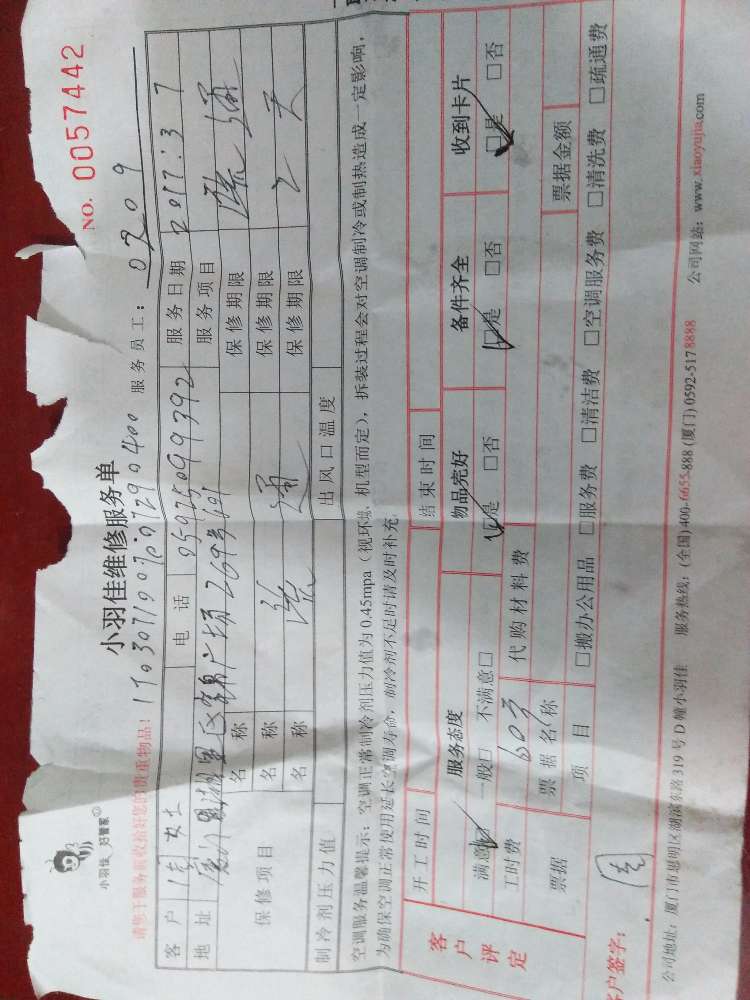 小羽佳 好管家
小羽佳维修服务单
NO. 0057442
请您于服务前收拾好您的贵重物品!
服务员工: 0209
客户 女士 电话 服务日期 2017.3.7
地址 厦门 湖里区 广场 269号601 服务项目 疏通
保修项目 名称 保修期限
名称 疏通 保修期限 2天
名称 保修期限
制冷剂压力值 出风口温度
空调服务温馨提示: 空调正常制冷剂压力值为0.45mpa(视环境、机型而定), 拆装过程会对空调制冷或制热造成一定影响,
为确保空调正常使用延长空调寿命, 制冷剂不足时请及时补充
开工时间 结束时间
客户评定 服务态度 物品完好 备件齐全 收到卡片
满意☑ 一般□ 不满意□ ☑是 □否 ☑是 □否 ☑是 □否
工时费 60元 代购材料费
票据 票据名称 票据金额
项目 □搬办公用品 □服务费 □清洁费 □空调服务费 □清洗费 □疏通费
客户签字: 周
公司地址: 厦门市思明区湖滨东路319号D幢小羽佳 服务热线: (全国)400-6655-888 (厦门)0592-5178888 公司网站: www.xiaoyujia.com